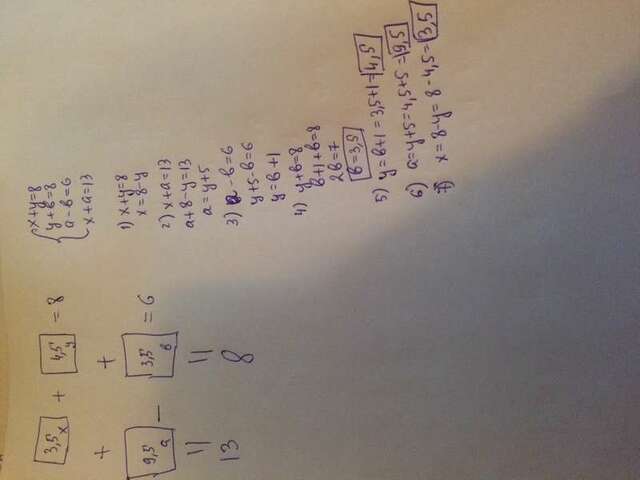 3,5 x + 4,5 y = 8
+ +
9,5 a − 3,5 в = 6
|| ||
13 8
x+y=8
y+в=8
a-в=6
x+a=13
1) x+y=8
x=8-y
2) x+a=13
a+8-y=13
a=y+5
3) a-в=6
y+5-в=6
y=в+1
4) y+в=8
в+1+в=8
2в=7
в=3,5
5) y=в+1=3,5+1=4,5
6) a=y+5=4,5+5=9,5
7) x=8-y=8-4,5=3,5